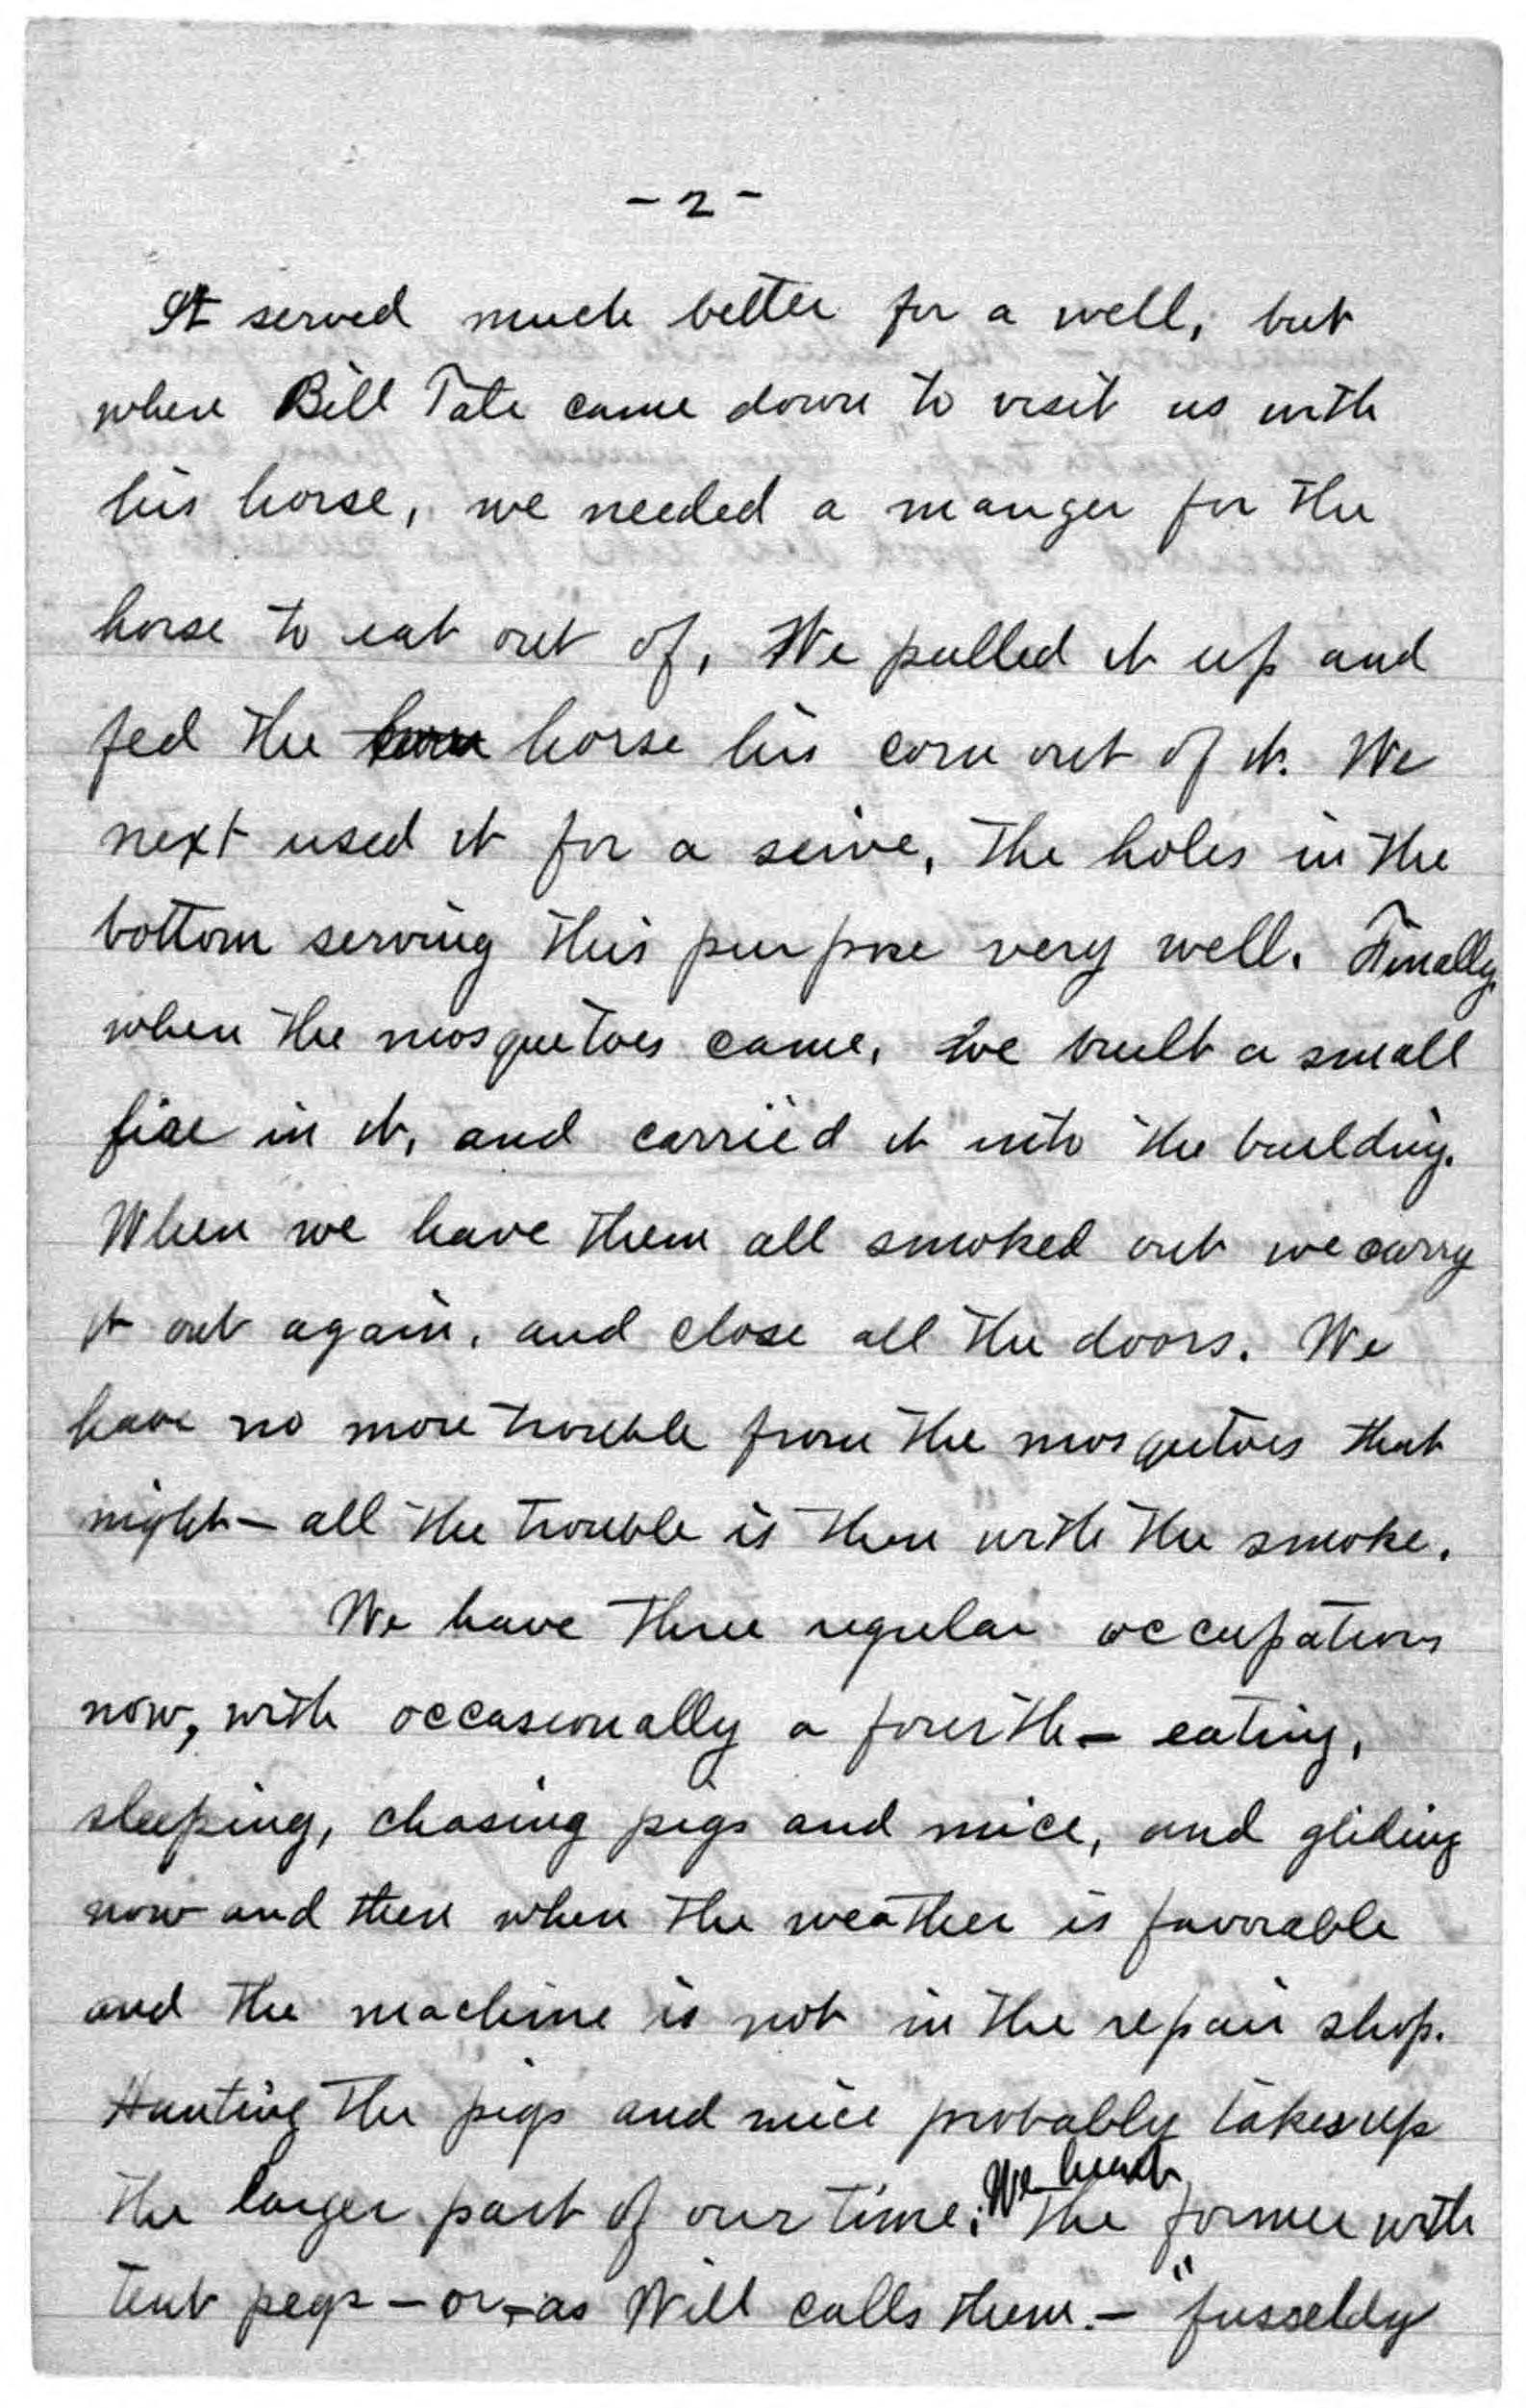 - 2 -
It served much better for a well, but
when Bill Tate came down to visit us with
his horse, we needed a manger for the
horse to eat out of. We pulled it up and
fed the horse his corn out of it. We
next used it for a seive, the holes in the
bottom serving this purpose very well. Finally,
when the mosquetoes came, we built a small
fire in it, and carried it into the building.
When we have them all smoked out we carry
it out again, and close all the doors. We
have no more trouble from the mosquetoes that
night — all the trouble is then with the smoke.
We have three regular occupations
now, with occasionally a fourth — eating,
sleeping, chasing pigs and mice, and gliding
now and then when the weather is favorable
and the machine is not in the repair shop.
Hunting the pigs and mice probably takes up
the larger part of our time. We hunt the former with
tent pegs — or, as Will calls them — "fusseldy